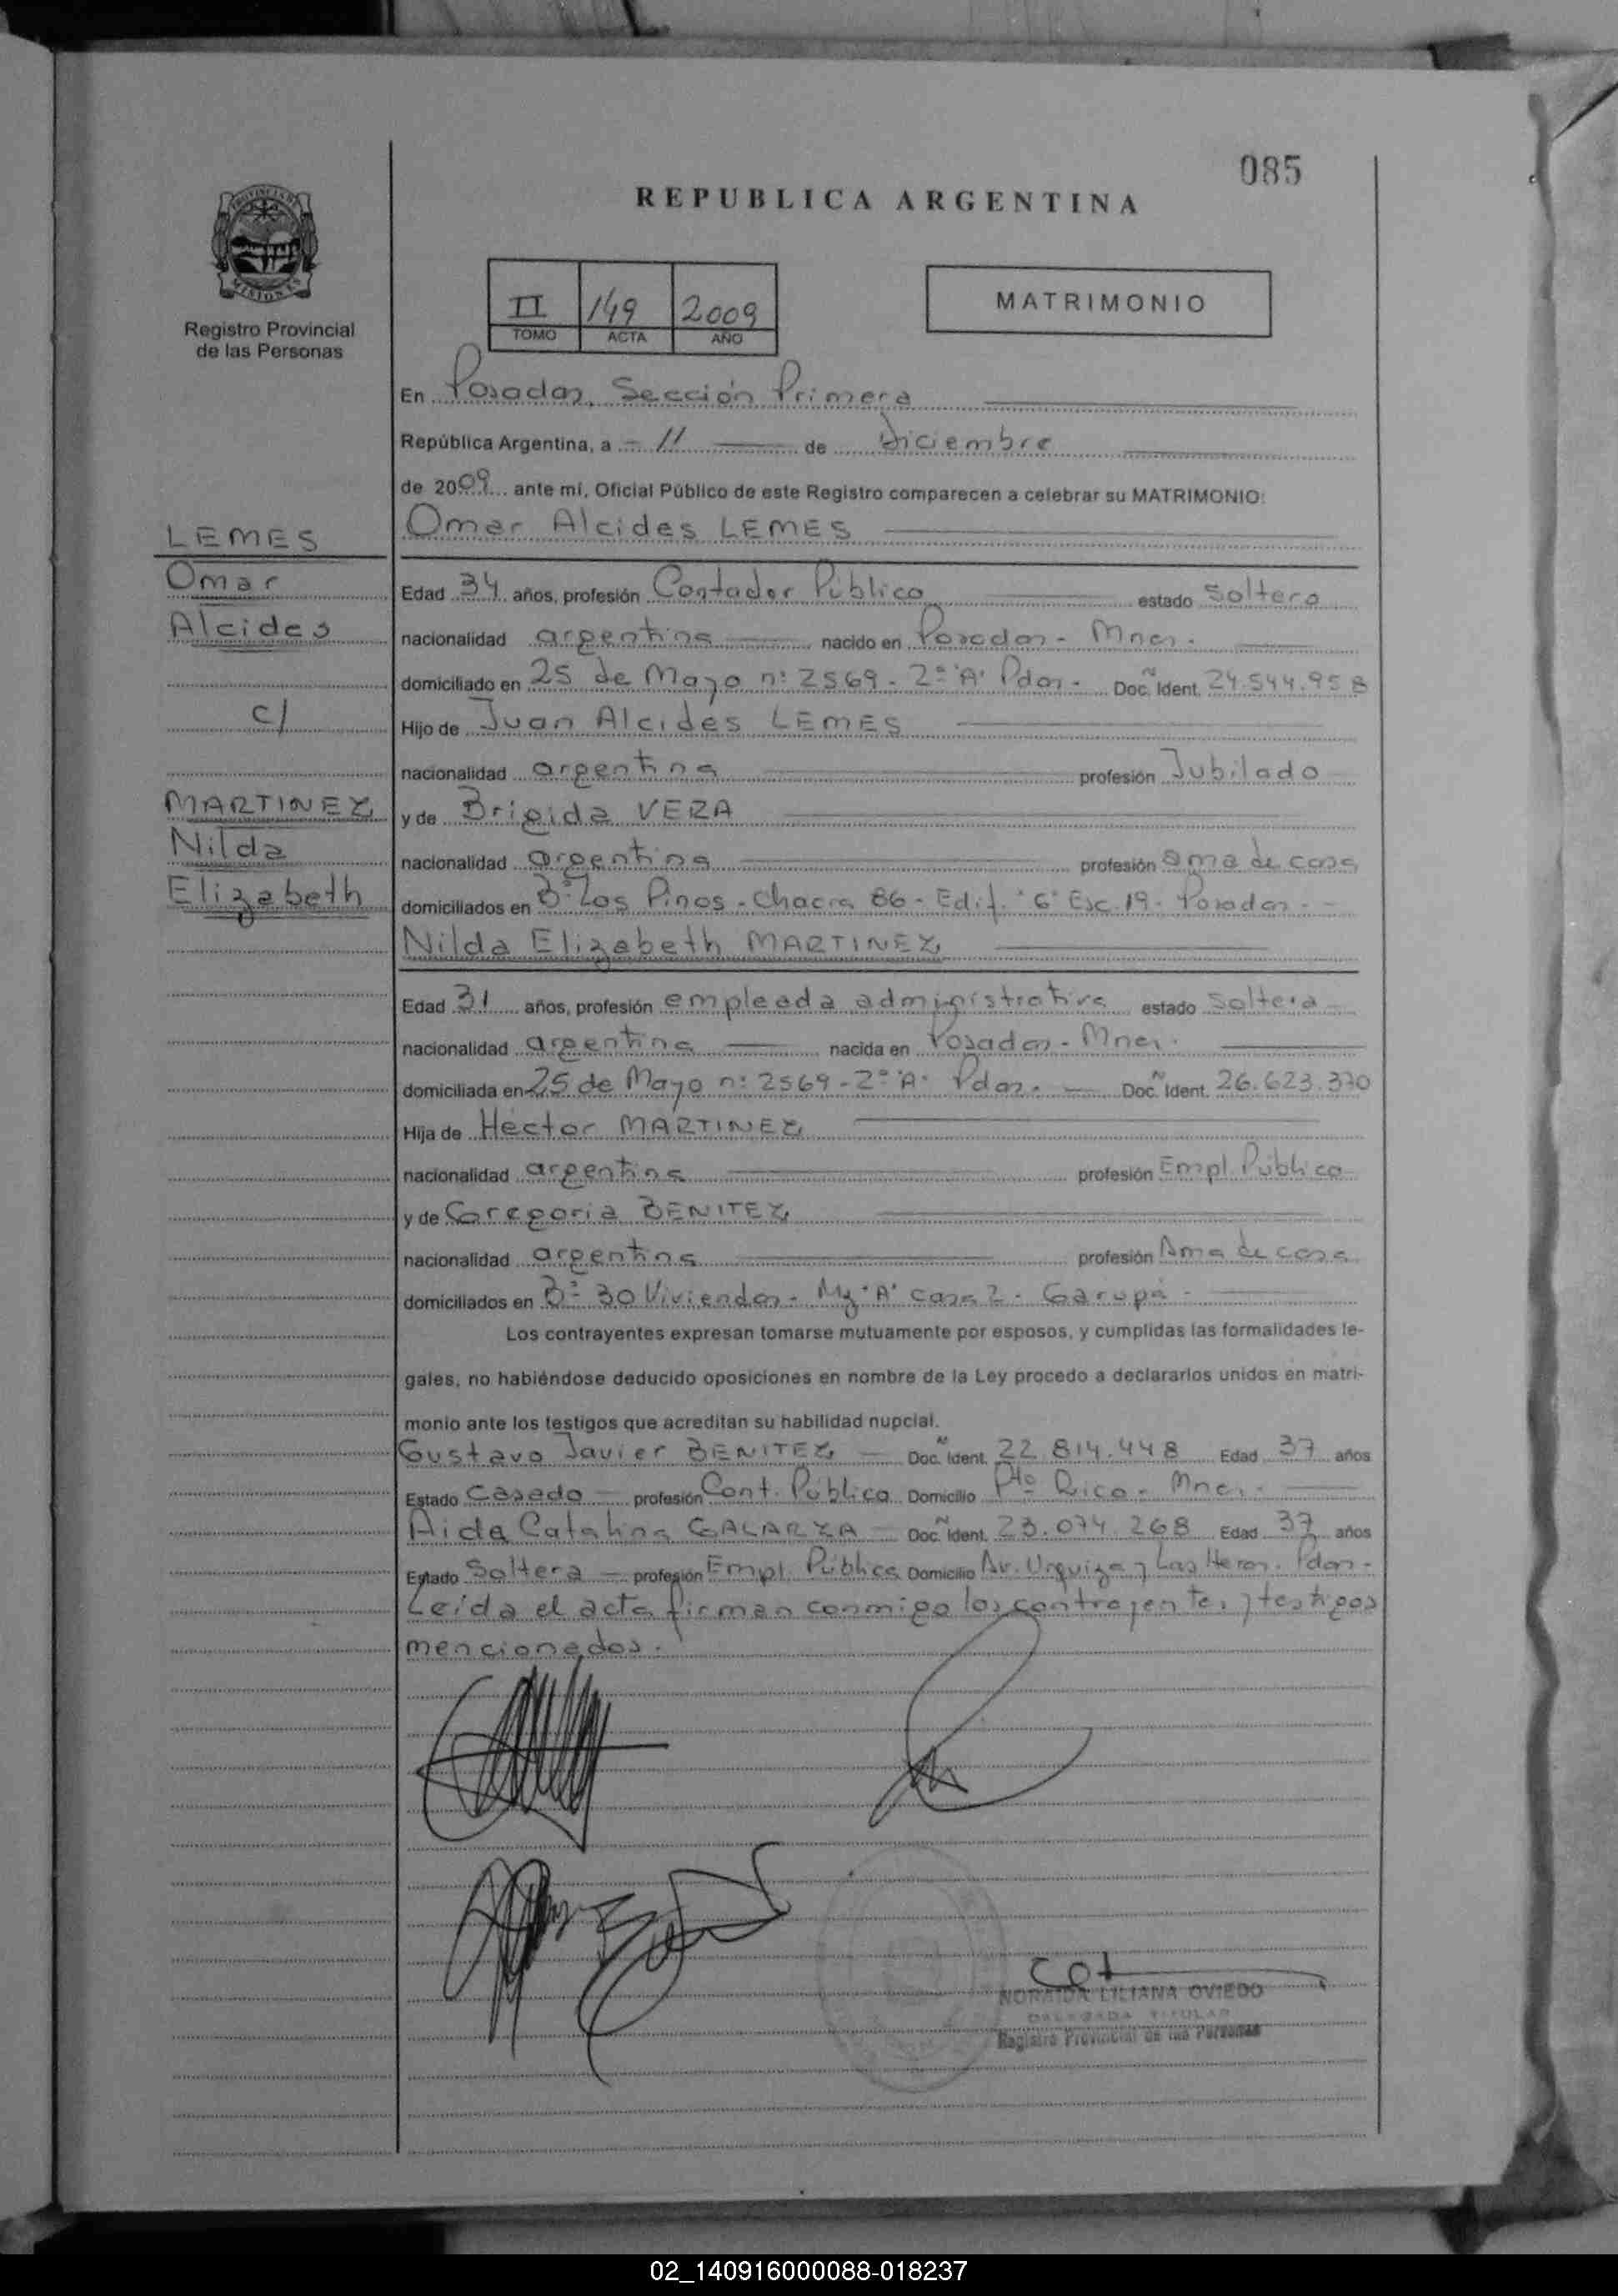 085
REPUBLICA ARGENTINA
PROVINCIA DE
MISIONES
Registro Provincial
de las Personas
II 149 2009
TOMO ACTA AÑO
MATRIMONIO
En Posadas, Sección Primera
República Argentina, a - 11 de Diciembre
de 2009 ante mí, Oficial Público de este Registro comparecen a celebrar su MATRIMONIO:
Omar Alcides LEMES
LEMES
Omar
Alcides
c/
MARTINEZ
Nilda
Elizabeth
Edad 34 años, profesión Contador Público estado Soltero
nacionalidad argentina nacido en Posadas - Mnes.
domiciliado en 25 de Mayo n: 2569 - 2º "A" Pdas. Doc. Ident. 24.544.958
Hijo de Juan Alcides LEMES
nacionalidad argentina profesión Jubilado
y de Brigida VERA
nacionalidad argentina profesión ama de casa
domiciliados en Bº Los Pinos - Chacra 86 - Edif. "6" Esc. 19 - Posadas - -
Nilda Elizabeth MARTINEZ
Edad 31 años, profesión empleada administrativa estado Soltera
nacionalidad argentina nacida en Posadas - Mnes.
domiciliada en 25 de Mayo n: 2569 - 2º "A" Pdas. - Doc. Ident. 26.623.370
Hija de Hector MARTINEZ
nacionalidad argentina profesión Empl. Público
y de Gregoria BENITEZ
nacionalidad argentina profesión Ama de casa
domiciliados en Bº 30 Viviendas - Mz "A" casa 2 - Garupá -
Los contrayentes expresan tomarse mutuamente por esposos, y cumplidas las formalidades le-
gales, no habiéndose deducido oposiciones en nombre de la Ley procedo a declararlos unidos en matri-
monio ante los testigos que acreditan su habilidad nupcial.
Gustavo Javier BENITEZ - Doc. Ident. 22.814.448 Edad 37 años
Estado Casado - profesión Cont. Público Domicilio Pto Rico - Mnes. -
Aida Catalina GALARZA - Doc. Ident. 23.074.268 Edad 37 años
Estado Soltera - profesión Empl. Pública Domicilio Av. Urquiza y Las Heras. Pdas -
Leída el acta firman conmigo los contrayentes y testigos
mencionados.
NORAIDA LILIANA OVIEDO
DELEGADA TITULAR
Registro Provincial de las Personas
02_140916000088-018237